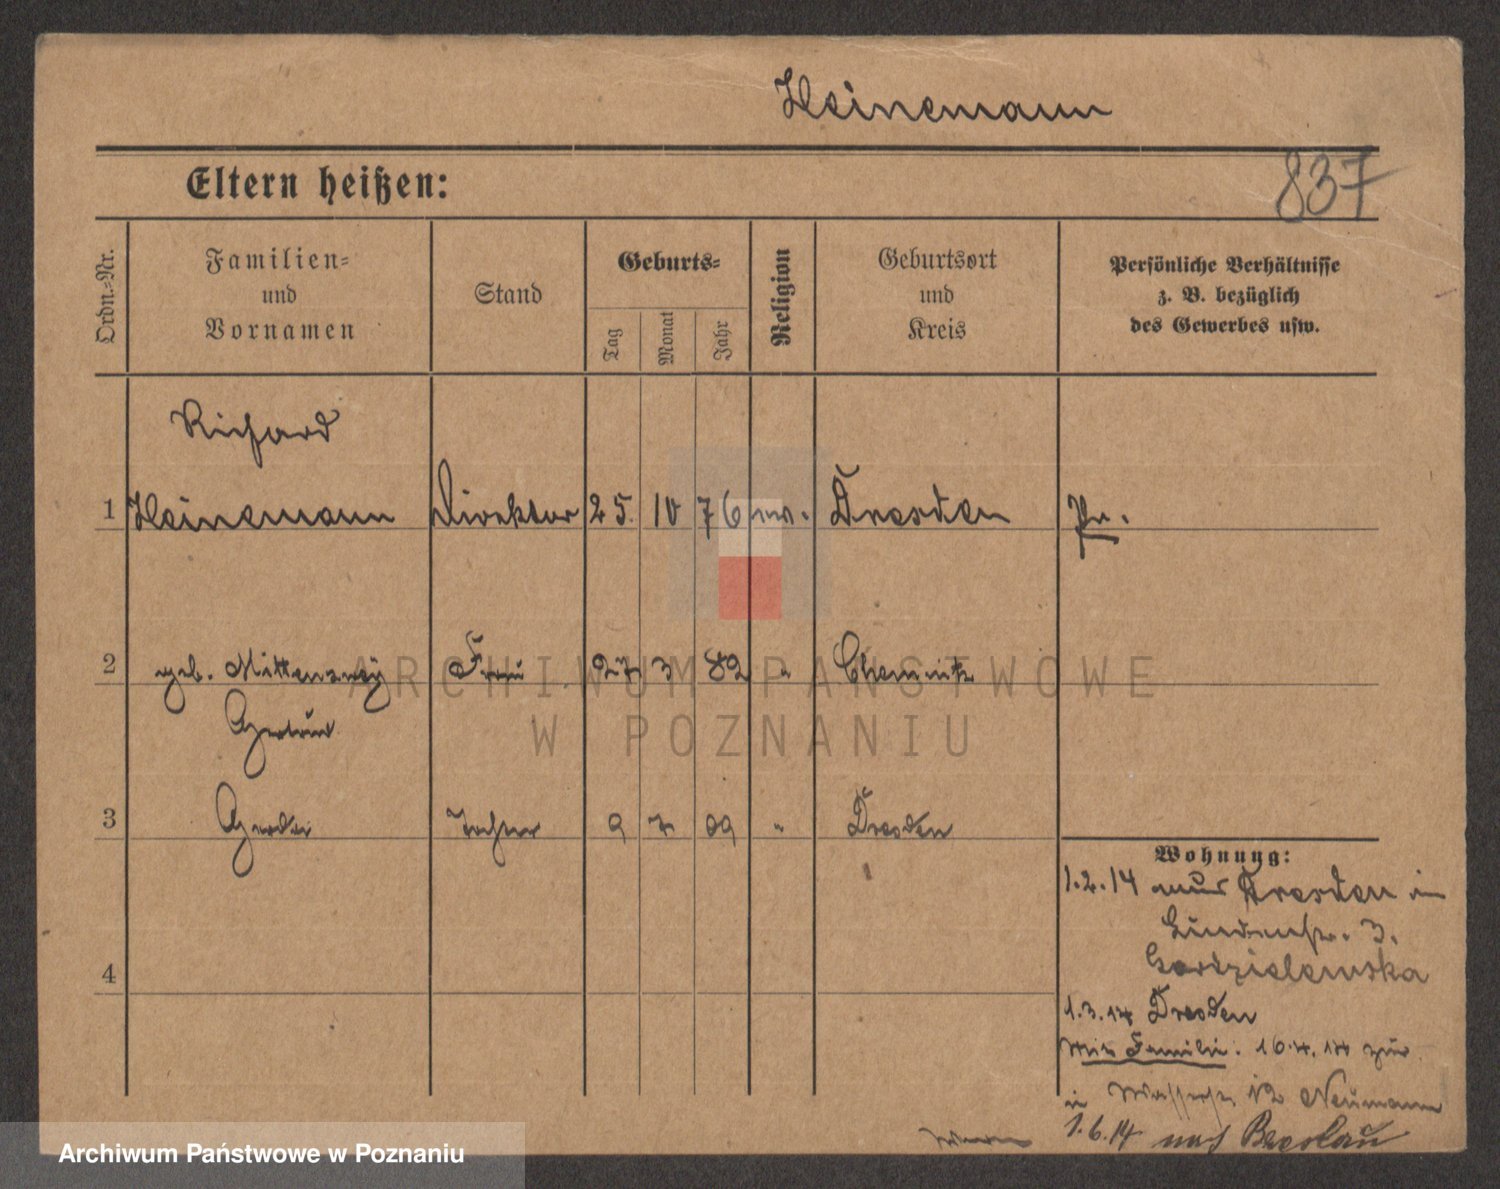 Heinemann
837
Eltern heißen:
Ordn.-Nr.
Familien-
und
Vornamen
Stand
Geburts-
Tag
Monat
Jahr
Religion
Geburtsort
und
Kreis
Persönliche Verhältnisse
z. B. bezüglich
des Gewerbes usw.
Richard
1 Heinemann Direktor 25. 10 76 ev. Dresden Pr.
2 geb. Mittenzwey Frau 27 3 82 " Chemnitz
Gertrud
3 Gerda Tochter 9 7 09 " Dresden
Wohnung:
1.2.14 aus Dresden in
Lindenstr. 3.
4
1.3.14 Dresden
mit Familie: 16.4.14 zur
in 12 Neumann
1.6.14 nach Breslau
ARCHIWUM PAŃSTWOWE
W POZNANIU
Archiwum Państwowe w Poznaniu